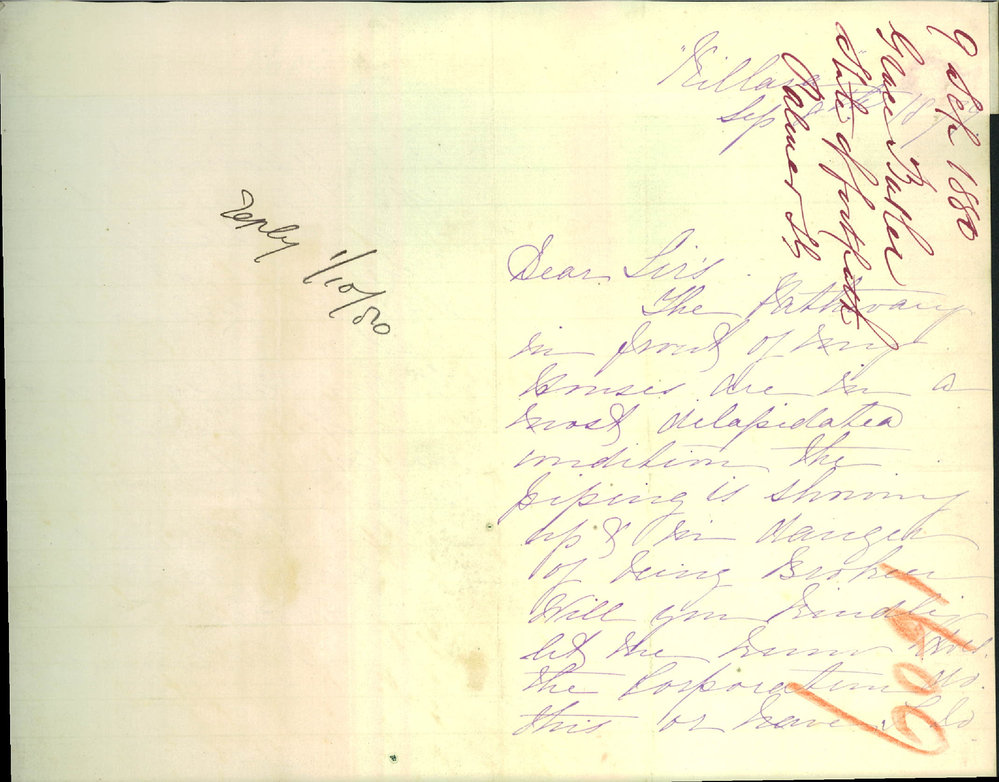 9 Sep 1880
Grace Barker
State of footpath
Palmer St
reply 1/10/80
Sep
Dear Sirs
The Pathway
in front of my
Houses are in a
most delapidated
condition the
piping is showing
up & in danger
of being Broken
Will you Kindly
let me know
the Corporation do
this or have I to
1609